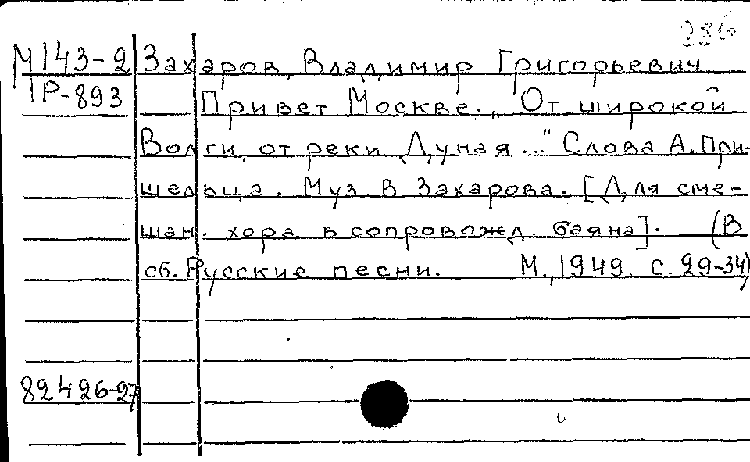 236
М143-2 Захаров, Владимир Григорьевич
1Р-893 Привет Москве. „От широкой
Волги, от реки Дуная..." Слова А. При-
шельца. Муз. В. Захарова. [Для сме-
шан. хора в сопровожд. баяна]. (В
сб. Русские песни. М., 1949. с. 29-34)
82426-27